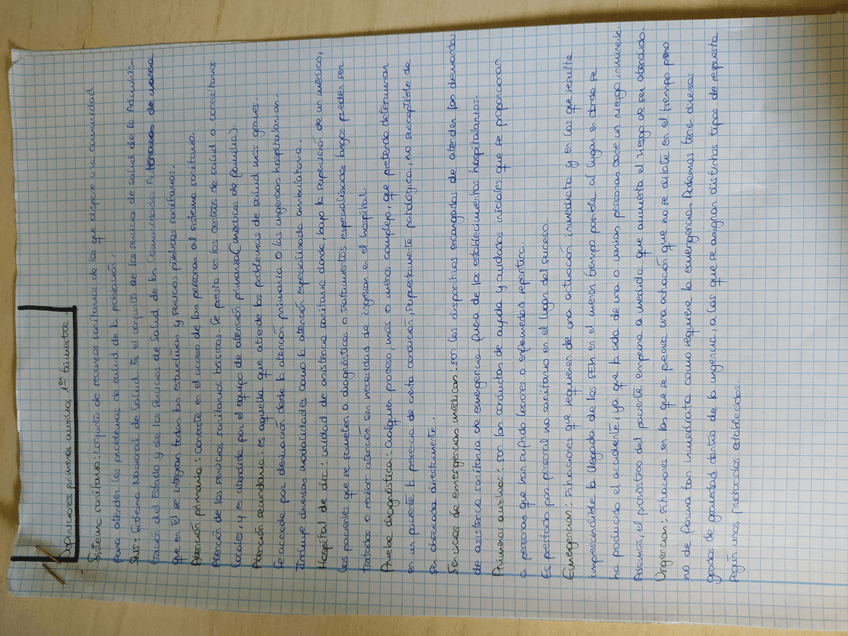 Definiciones primeros auxilios, 1er trimestre.
- Sistema sanitario: conjunto de recursos sanitarios de los que dispone una comunidad
para atender los problemas de salud de la población.
SNS: Sistema Nacional de Salud. Es el conjunto de los servicios de salud de la Adminis-
tración del Estado y de los servicios de salud de las Comunidades Autónomas de manera
que en él se integran todas las estructuras y servicios públicos sanitarios.
Atención primaria: consiste en el acceso de las personas al sistema sanitario.
Atención de los servicios sanitarios básicos. Se presta en los centros de salud o consultorios
locales y es atendida por el equipo de atención primaria (médicos de familia).
Atención secundaria: es aquella que aborda los problemas de salud más graves.
Se accede por derivación desde la atención primaria o las urgencias hospitalarias.
Incluye diversas modalidades como la atención especializada ambulatoria.
Hospital de día: unidad de asistencia sanitaria donde, bajo la supervisión de un médico,
los pacientes que se someten a diagnóstico o tratamientos especializados largos pueden ser
tratados o recibir atención sin necesidad de ingresar en el hospital.
Prueba diagnóstica: cualquier proceso, más o menos complejo, que pretenda determinar
en un paciente la presencia de cierta condición, supuestamente patológica, no susceptible de
ser observada directamente.
Servicios de emergencias médicas: son los dispositivos encargados de atender las demandas
de asistencia sanitaria de emergencia fuera de los establecimientos hospitalarios.
Primeros auxilios: son las conductas de ayuda y cuidados iniciales que se proporcionan
a personas que han sufrido lesiones o enfermedades repentinas.
Es prestada por personal no sanitario en el lugar del suceso.
Emergencias: situaciones que requieren de una actuación inmediata y en las que resulta
imprescindible la llegada de los SEM en el menor tiempo posible al lugar a donde se
ha producido el accidente, ya que la vida de una o varias personas corre un riesgo inminente.
Además, el pronóstico del paciente empeora a medida que aumenta el tiempo de ser atendido.
Urgencias: situaciones en las que se precisa una actuación que no se dilate en el tiempo pero
no de forma tan inmediata como requiere la emergencia. Podemos tener diversos
grados de gravedad dentro de la urgencia, a los que se asignan distintos tipos de respuesta
según unos protocolos establecidos.